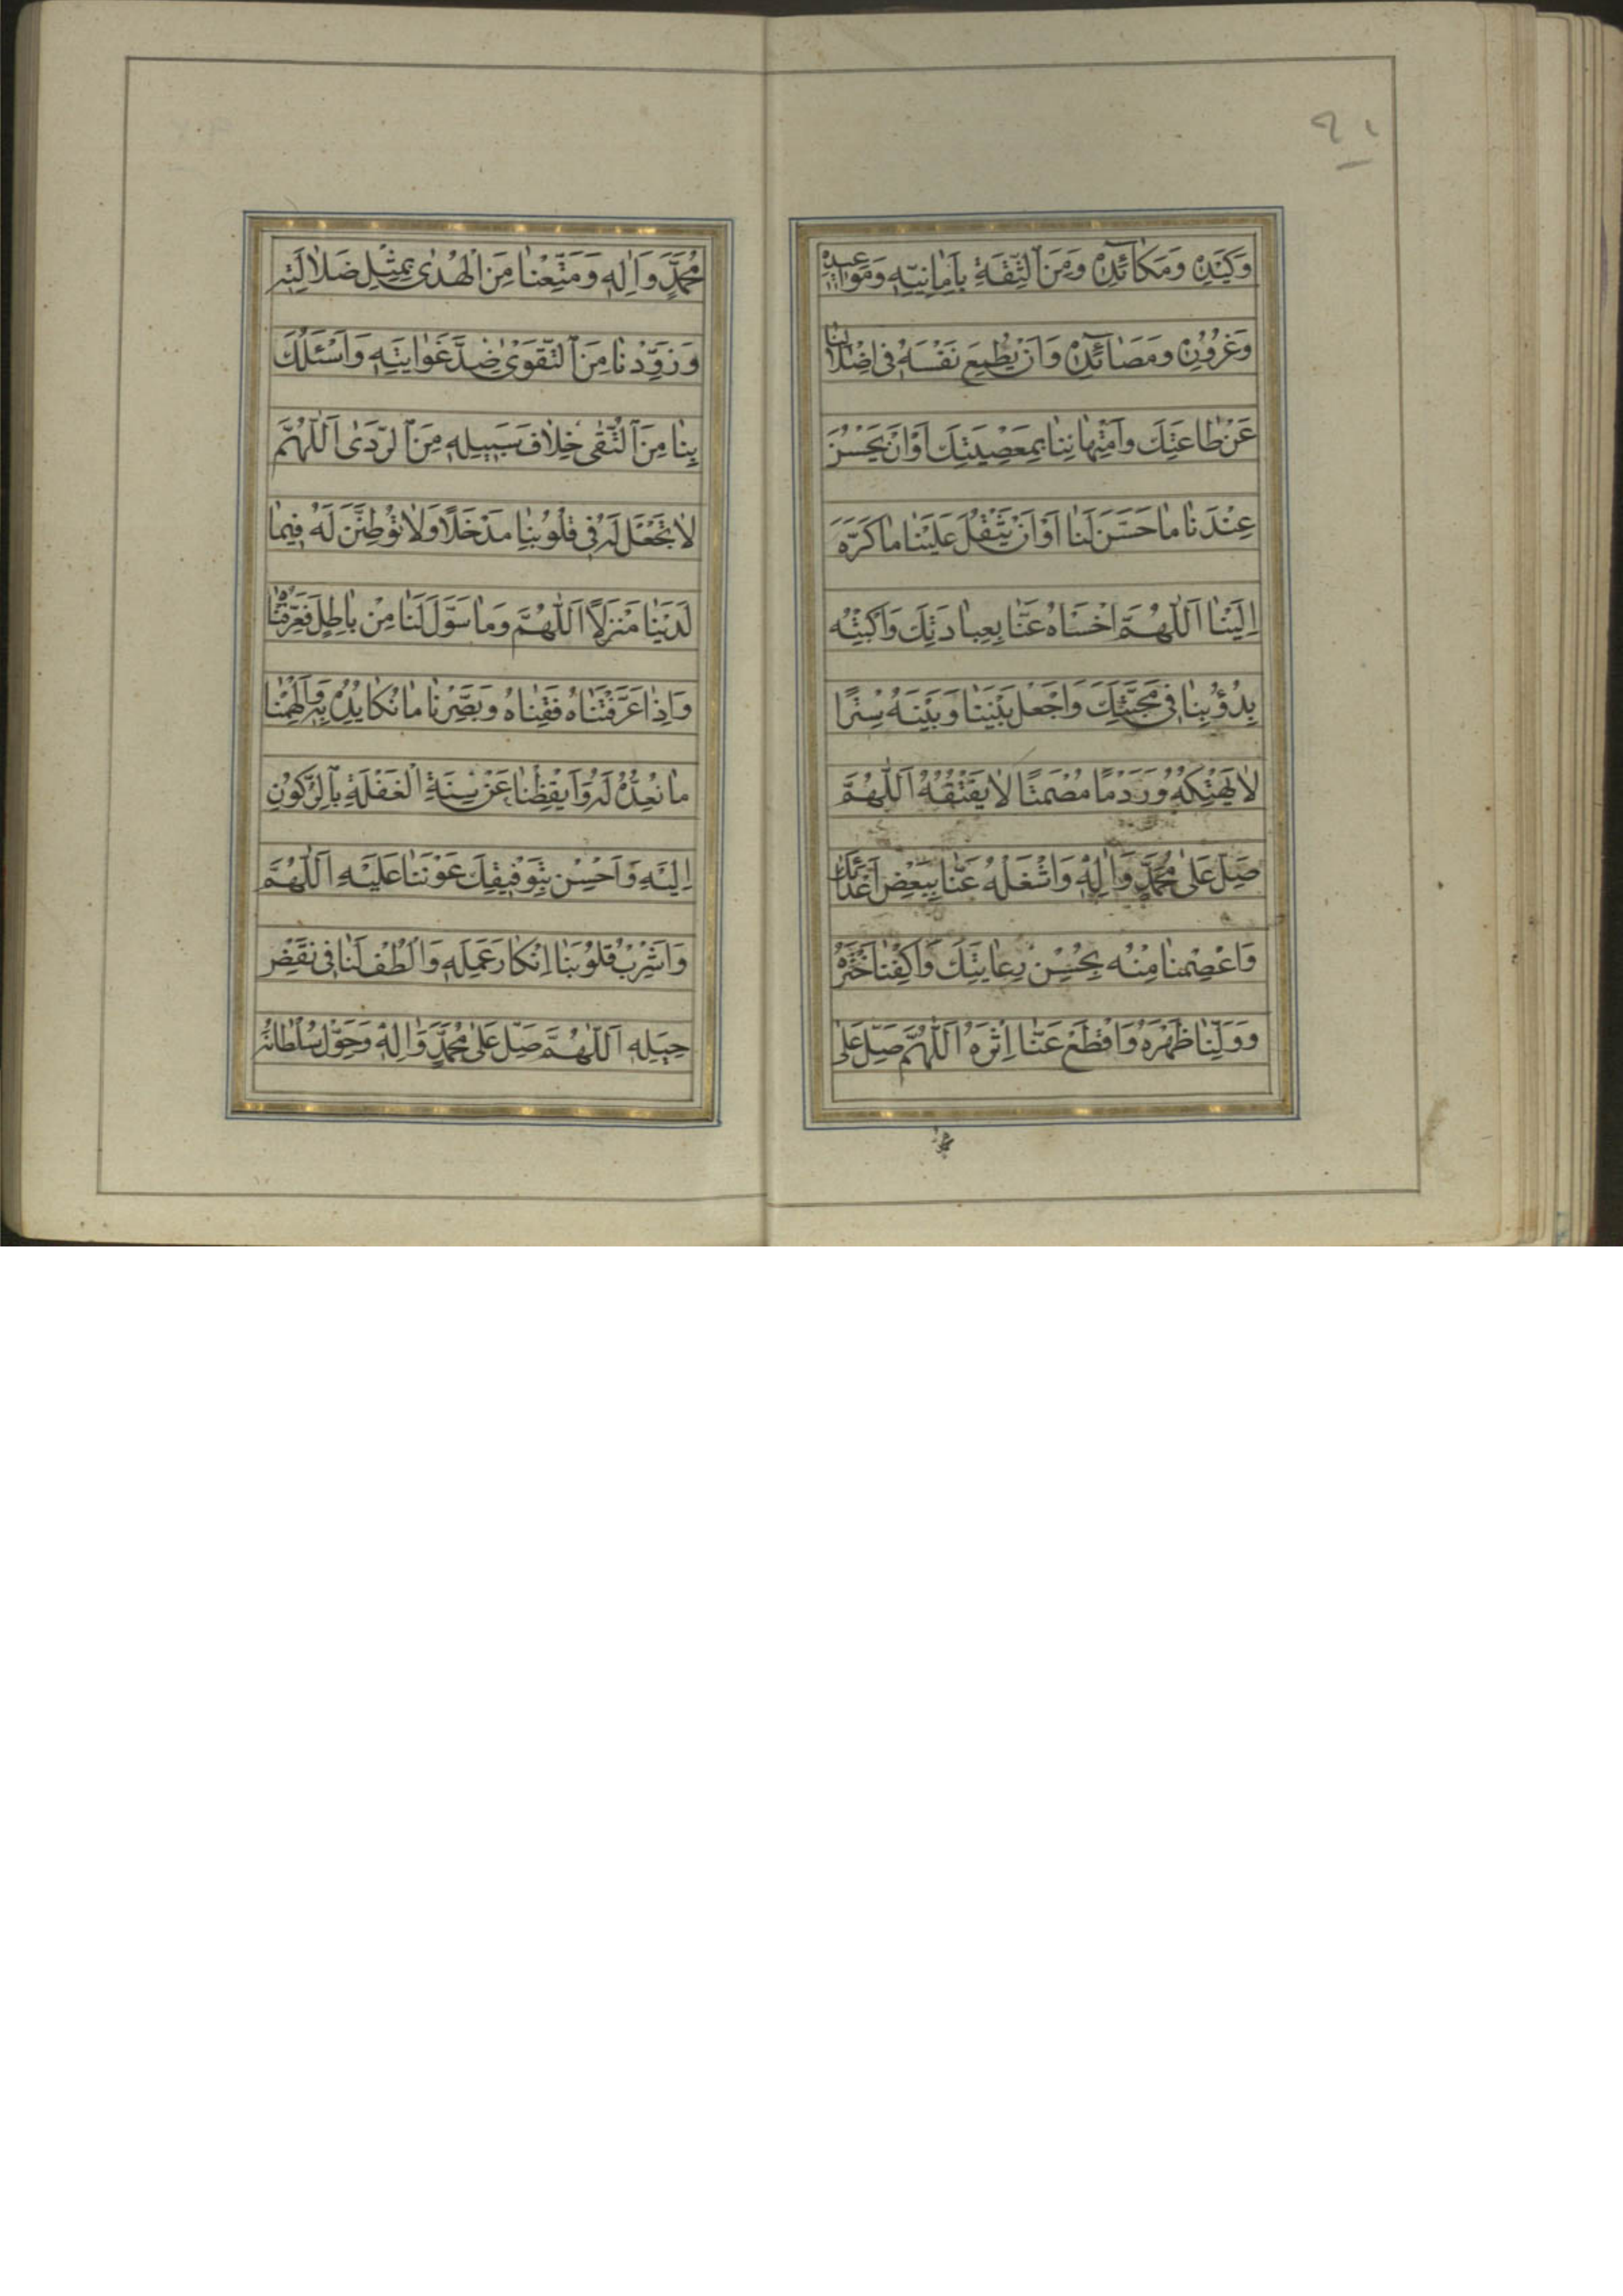 ٩١
وَكَيْدِهِ وَمَكَائِدِهِ وَمِنَ الثِّقَةِ بِاَمَانِيِّهِ وَمَوَاعِيدِهِ
وَغُرُورِهِ وَمَصَائِدِهِ وَاَنْ يُطْمِعَ نَفْسَهُ فِى اِضْلَالِنَا
عَنْ طَاعَتِكَ وَامْتِهَانِنَا بِمَعْصِيَتِكَ اَوْ اَنْ يَحْسُنَ
عِنْدَنَا مَا حَسَّنَ لَنَا اَوْ اَنْ يَثْقُلَ عَلَيْنَا مَا كَرَّهَ
اِلَيْنَا اَللّٰهُمَّ اخْسَأْهُ عَنَّا بِعِبَادَتِكَ وَاكْبِتْهُ
بِدُؤُبِنَا فِى مَحَبَّتِكَ وَاجْعَلْ بَيْنَنَا وَبَيْنَهُ سِتْرًا
لَا يَهْتِكُهُ وَرَدْمًا مُصْمَتًا لَا يَفْتُقُهُ اَللّٰهُمَّ
صَلِّ عَلٰى مُحَمَّدٍ وَاٰلِهِ وَاشْغَلْهُ عَنَّا بِبَعْضِ اَعْدَائِكَ
وَاعْصِمْنَا مِنْهُ بِحُسْنِ رِعَايَتِكَ وَاكْفِنَا خَتْرَهُ
وَوَلِّنَا ظَهْرَهُ وَاقْطَعْ عَنَّا اِثْرَهُ اَللّٰهُمَّ صَلِّ عَلٰى
مُحَمَّدٍ وَاٰلِهِ وَمَتِّعْنَا مِنَ الْهُدٰى بِمِثْلِ ضَلَالَتِهِ
وَزَوِّدْنَا مِنَ التَّقْوٰى ضِدَّ غَوَايَتِهِ وَاَسْئَلُكَ
بِنَا مِنَ التُّقٰى خِلَافَ سَبِيلِهِ مِنَ الرَّدٰى اَللّٰهُمَّ
لَا تَجْعَلْ لَهُ فِى قُلُوبِنَا مَدْخَلًا وَلَا تُوَطِّنَنَّ لَهُ فِيمَا
لَدَيْنَا مَنْزِلًا اَللّٰهُمَّ وَمَا سَوَّلَ لَنَا مِنْ بَاطِلٍ فَعَرِّفْنَاهُ
وَاِذَا عَرَّفْتَنَاهُ فَقِنَاهُ وَبَصِّرْنَا مَا نُكَايِدُهُ بِهِ وَاَلْهِمْنَا
مَا نُعِدُّهُ لَهُ وَاَيْقِظْنَا عَنْ سِنَةِ الْغَفْلَةِ بِالرُّكُونِ
اِلَيْهِ وَاَحْسِنْ بِتَوْفِيقِكَ عَوْنَنَا عَلَيْهِ اَللّٰهُمَّ
وَاَشْرِبْ قُلُوبَنَا اِنْكَارَ عَمَلِهِ وَالْطُفْ لَنَا فِى نَقْضِ
حِيَلِهِ اَللّٰهُمَّ صَلِّ عَلٰى مُحَمَّدٍ وَاٰلِهِ وَحَوِّلْ سُلْطَانَهُ